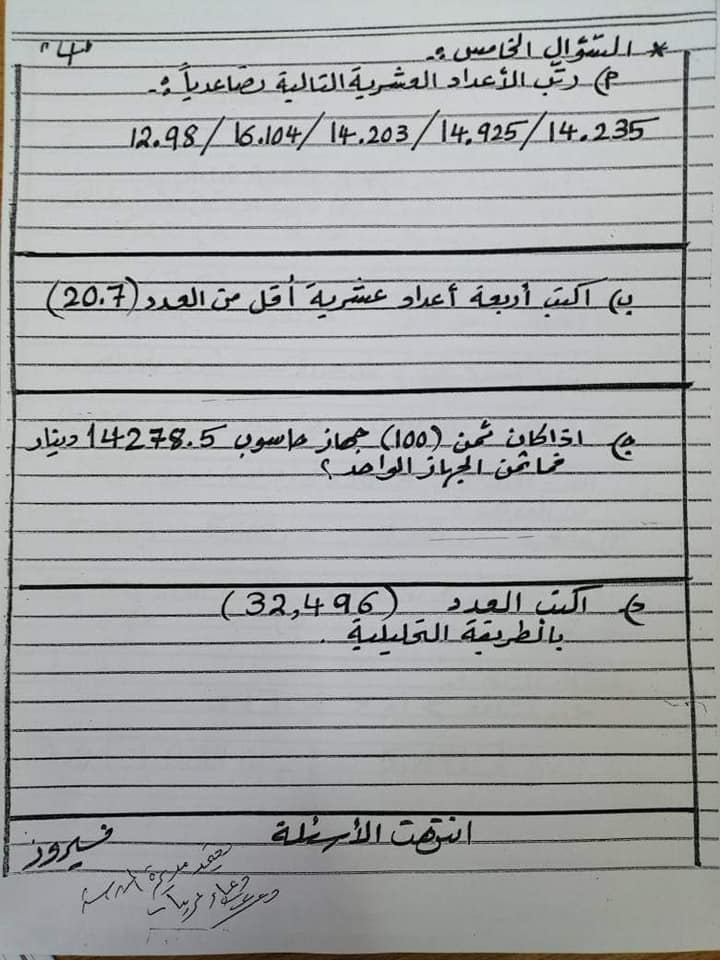 * السؤال الخامس :-
"4"
أ) رتّب الأعداد العشرية التالية تصاعدياً :-
12.98 / 16.104 / 14.203 / 14.925 / 14.235
ب) اكتب أربعة أعداد عشرية أقل من العدد (20.7)
ج) اذا كان ثمن (100) جهاز حاسوب 14278.5 دينار
فما ثمن الجهاز الواحد ؟
د) اكتب العدد (32,496)
بالطريقة التحليلية .
انتهت الأسئلة